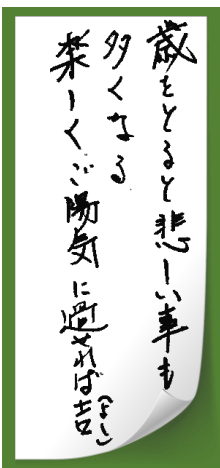 歳をとると悲しい事も
多くなる
楽しくご陽気に過せれば吉(よし)